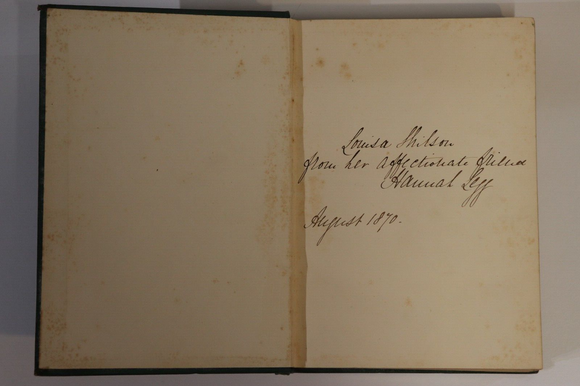 Louisa Shilson
from her affectionate friend
Hannah Legg
August 1870.